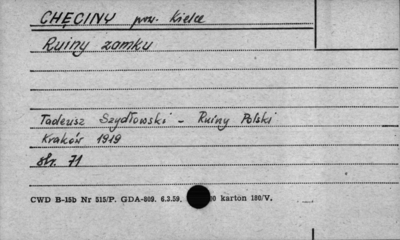 CHĘCINY pow. Kielce
Ruiny zamku
Tadeusz Szydłowski - Ruiny Polski
Kraków 1919
str. 71
CWD B-15b Nr 515/P. GDA-809. 6.3.59. 00 karton 180/V.